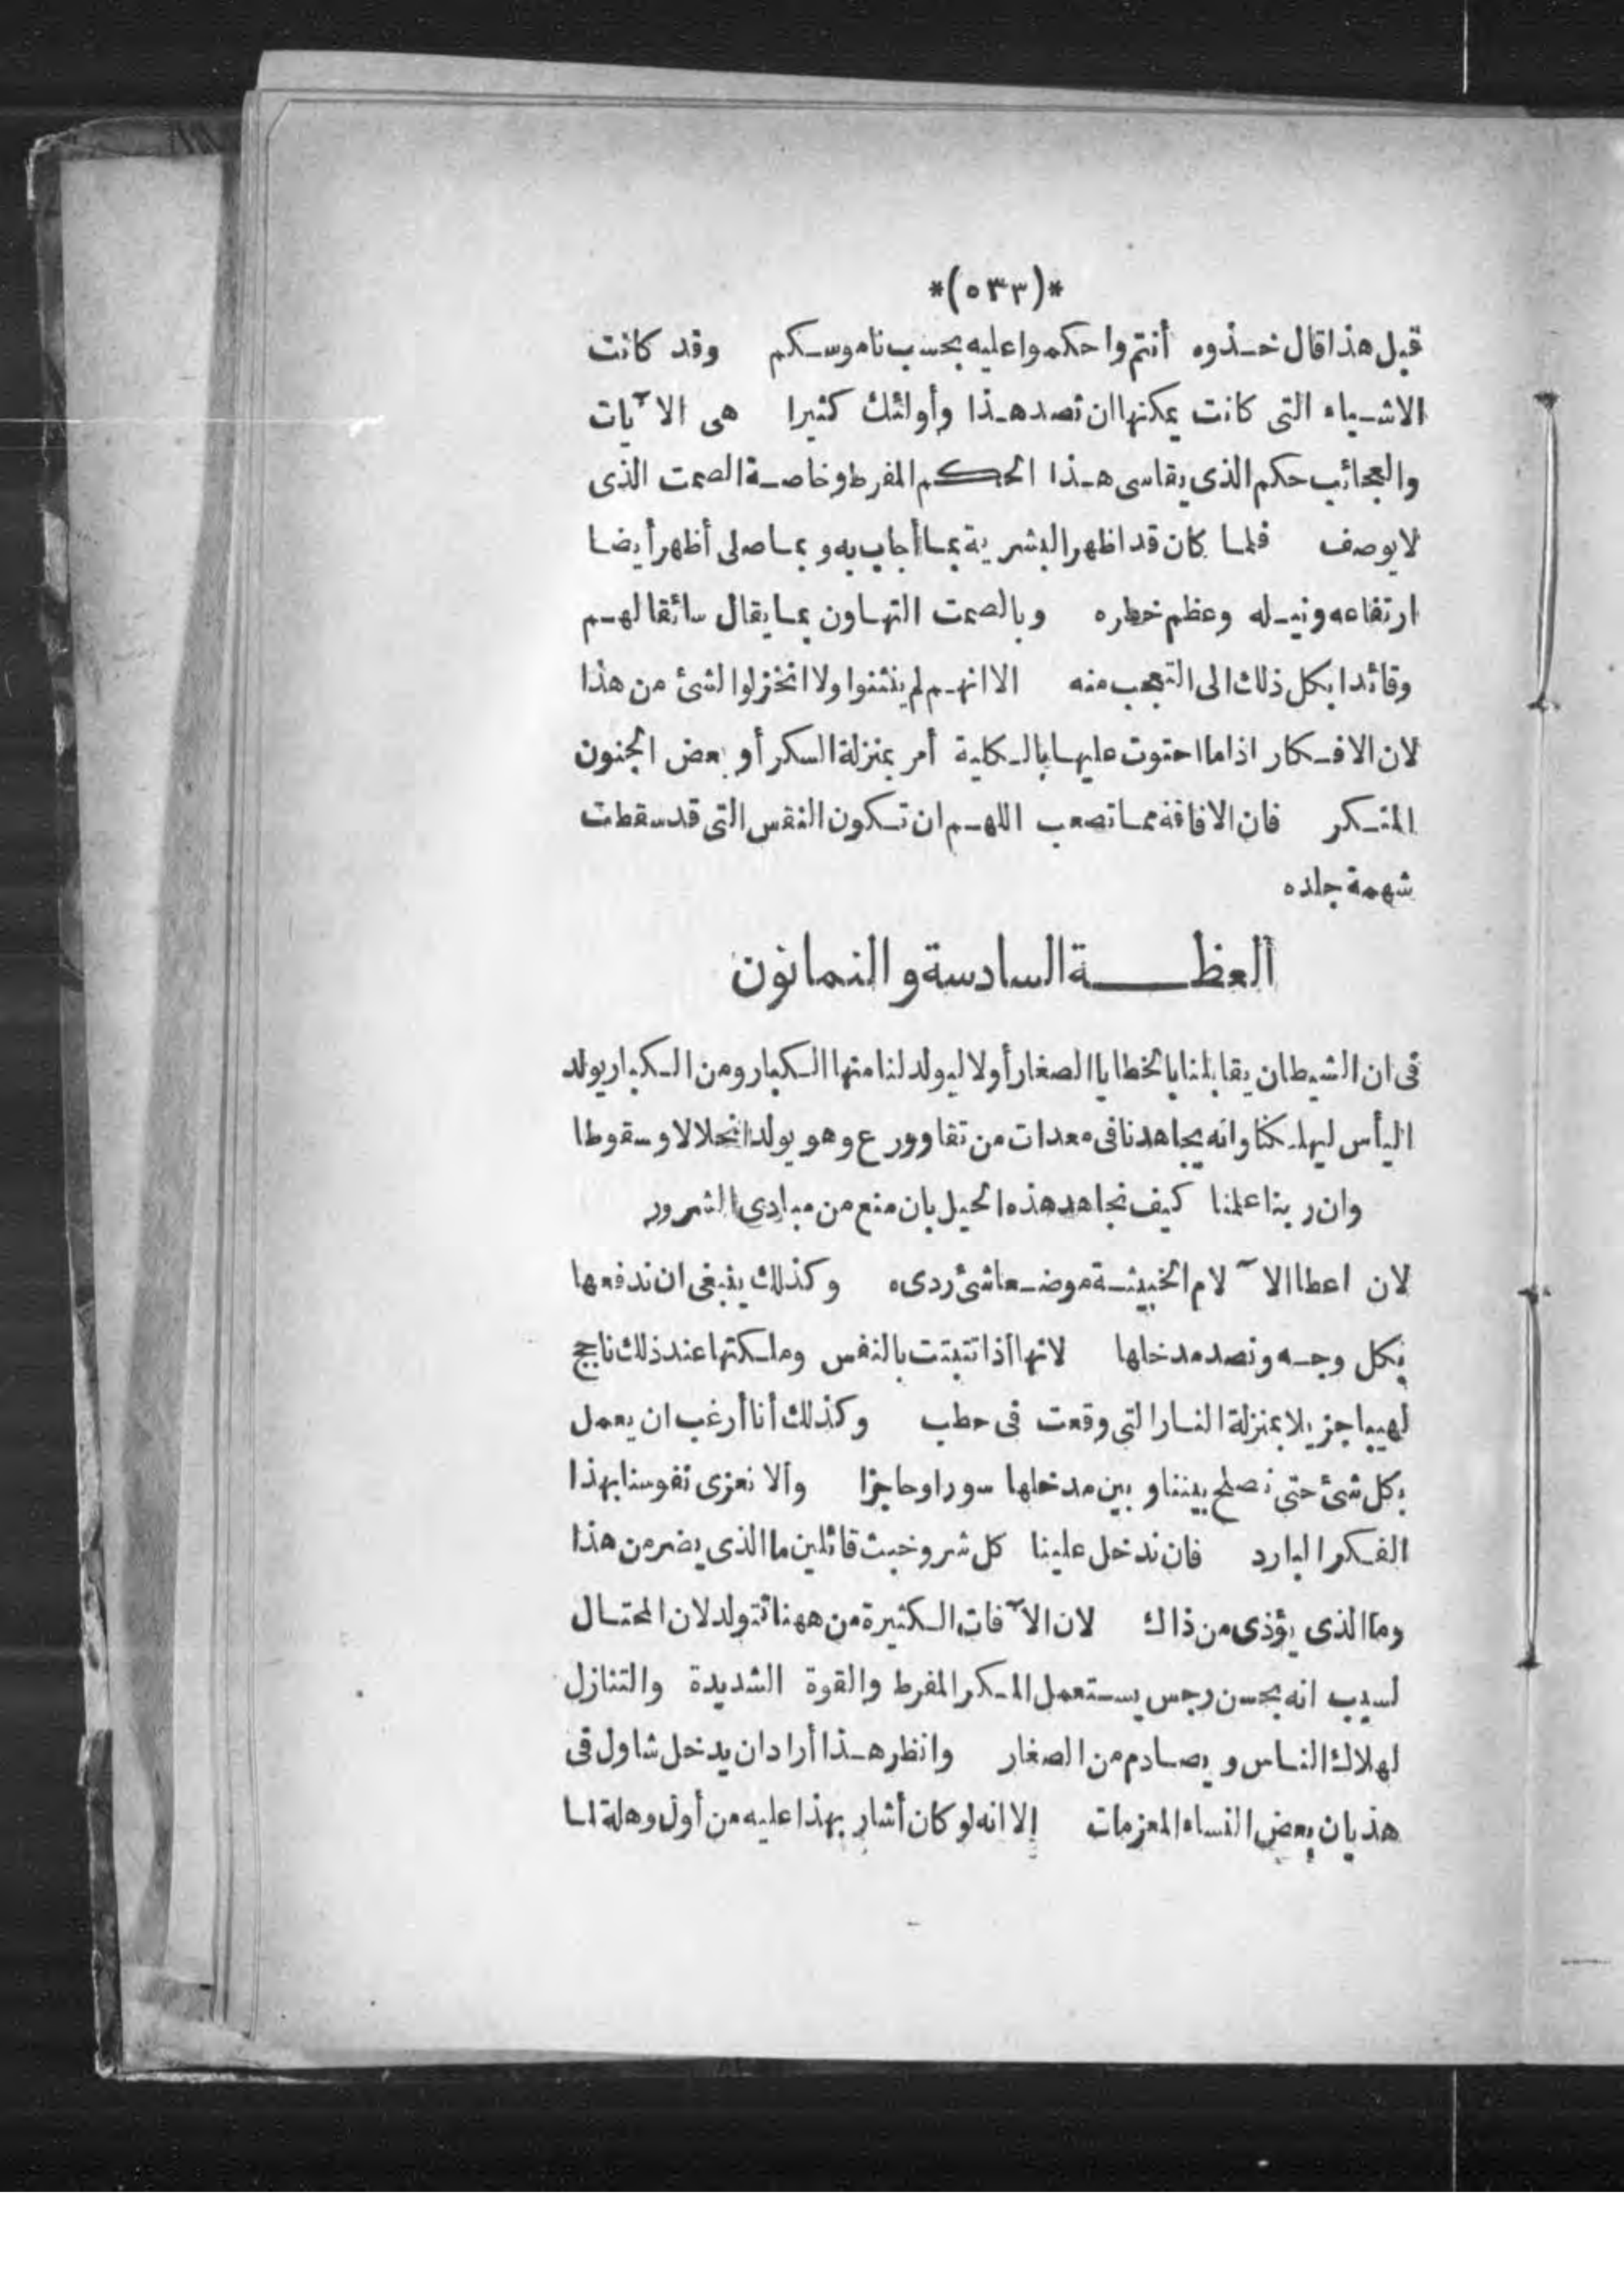 *(٥٣٣)*
قبل هذا قال خذوه أنتم واحكموا عليه بحسب ناموسكم وقد كانت
الاشياء التى كانت يمكنها ان تصد هذا وأولئك كثيرا هى الآيات
والعجائب حكم الذى يقاسى هذا الحكم المفرط وخاصة الصمت الذى
لا يوصف فلما كان قد اظهر البشرية بما أجاب به وبما صلى أظهر أيضا
ارتفاعه ونبله وعظم خطره وبالصمت التهاون بما يقال سائقا لهم
وقائدا بكل ذلك الى التعجب منه الا انهم لم ينثنوا ولا انخزلوا لشئ من هذا
لان الافكار اذا ما احتوت عليها بالكلية أمر بمنزلة السكر أو بعض الجنون
المنكر فان الافاقة مما تصعب اللهم ان تكون النفس التى قد سقطت
شهمة جلده
العظة السادسة والثمانون
فى ان الشيطان يقابلنا بالخطايا الصغار أولا ليولد لنا منها الكبار ومن الكبار يولد
اليأس ليهلكنا وانه يجاهدنا فى معدات من تقا وورع وهو يولد انحلالا وسقوطا
وان ربنا علمنا كيف نجاهد هذه الحيل بان منع من مبادى الشرور
لان اعطا الآلام الخبيثة موضعا شئ ردىء وكذلك ينبغى ان ندفعها
بكل وجه ونصد مدخلها لانها اذا تثبتت بالنفس وملكتها عند ذلك تاجج
لهيبا جزيلا بمنزلة النار التى وقعت فى حطب وكذلك أنا أرغب ان يعمل
بكل شئ حتى نصلح بيننا وبين مدخلها سورا وحاجزا وألا نعزى نفوسنا بهذا
الفكر البارد فان ندخل علينا كل شر وخبث قائلين ما الذى يضر من هذا
وما الذى يؤذى من ذاك لان الآفات الكثيرة من ههنا تتولد لان المحتال
لسبب انه نجس رجس يستعمل المكر المفرط والقوة الشديدة والتنازل
لهلاك الناس ويصادم من الصغار وانظر هذا أراد ان يدخل شاول فى
هذيان بعض النساء المعزمات إلا انه لو كان أشار بهذا عليه من أول وهلة لما